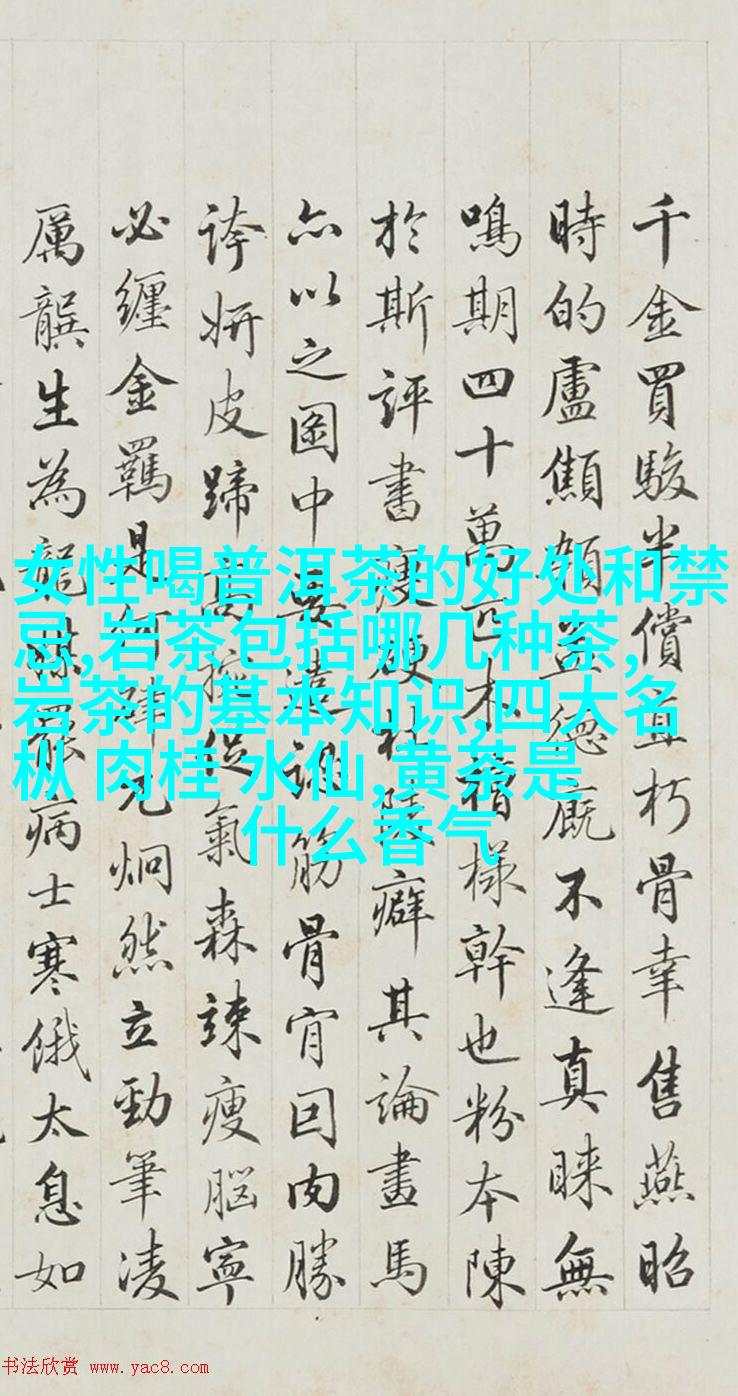 女性喝普洱茶的好处和禁
忌,岩茶包括哪几种茶,
岩茶的基本知识,四大名
枞 肉桂 水仙,黄茶是
什么香气
千金買駿半償直朽骨幸售燕昭
時的盧顦顇益德廐不逢真睞無
鳴期四十萬匹樣幹也粉本陳
於斯評書瘦硬杜陵癖其論畫馬
亦以之圖中筋骨肉勝
誇妍皮蹄高氣森竦瘦腦寧
必纏金羈是何炯然立勁筆凌
厲龔生為龍媒病士寒餓太息如
书法欣赏 www.yac8.com